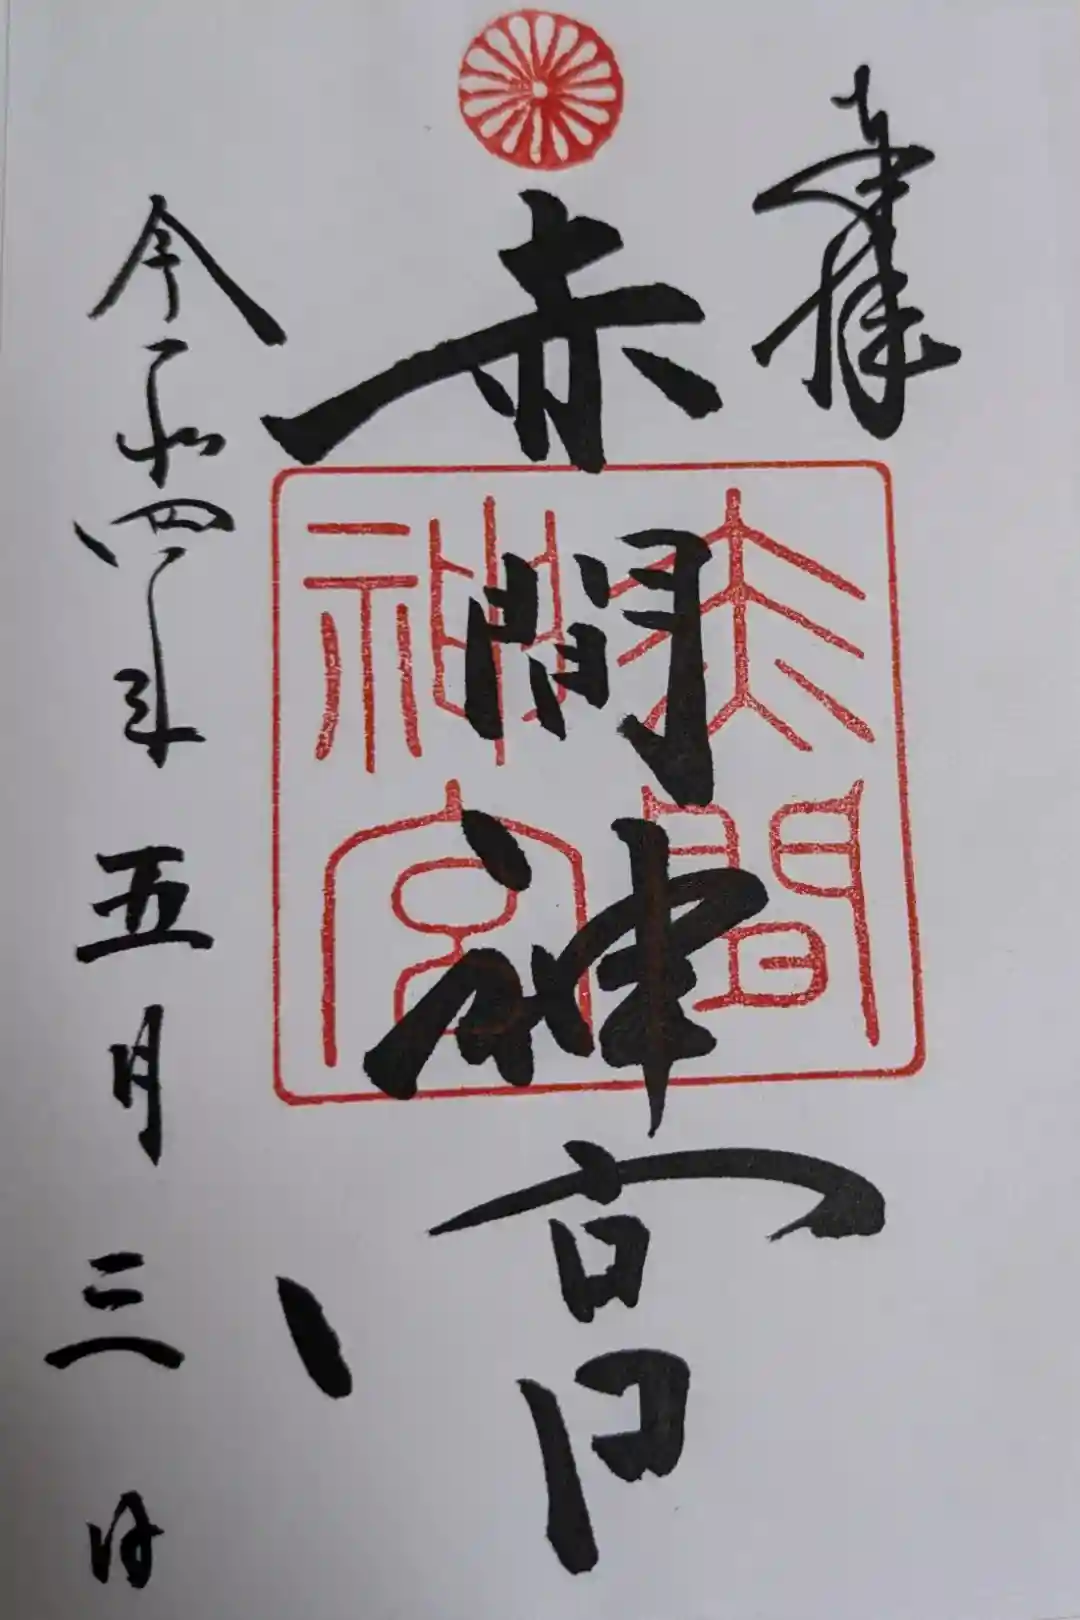 奉拝
赤間神宮
赤間
神宮
令和四年五月三日